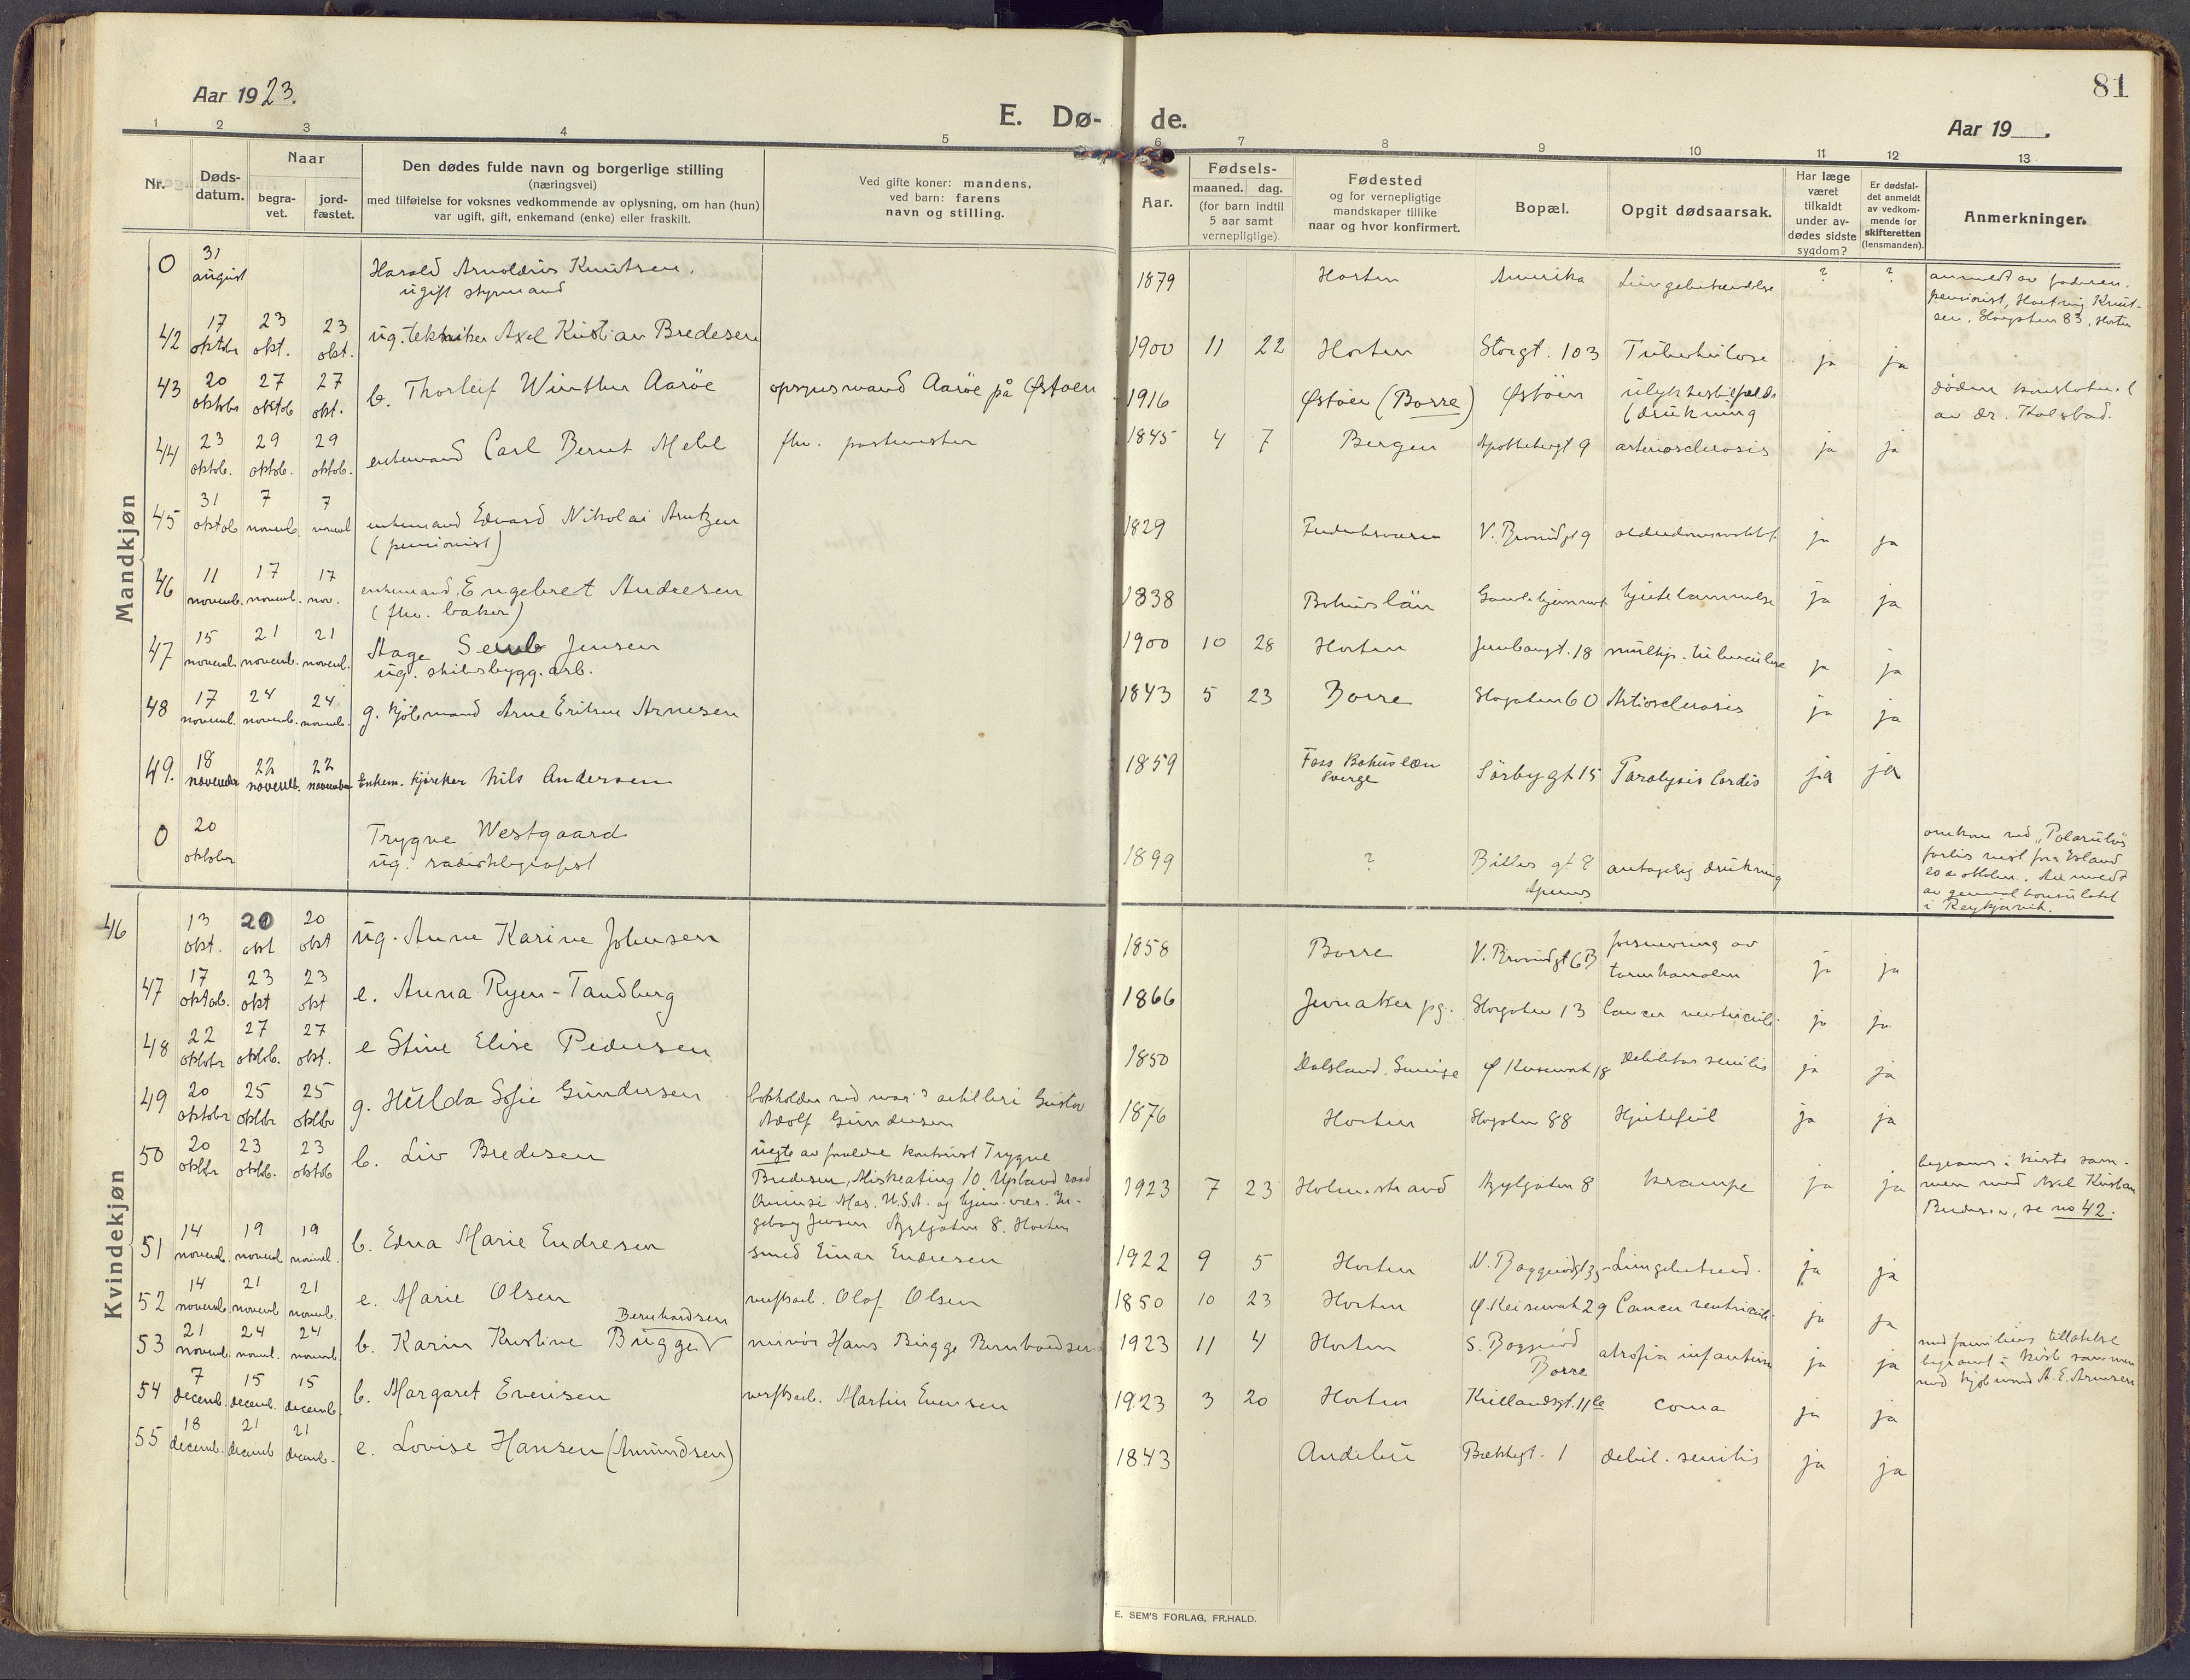 81
Aar 1923.
E. Dø-
de.
Aar 19 .
1 2 3 4 5 6 7 8 9 10 11 12 13
Nr.
Døds-
datum.
Naar
begra-
vet.
jord-
fæstet.
Den dødes fulde navn og borgerlige stilling
(næringsvei)
med tilføielse for voksnes vedkommende av oplysning, om han (hun)
var ugift, gift, enkemand (enke) eller fraskilt.
Ved gifte koner: mandens,
ved barn: farens
navn og stilling.
Aar.
Fødsels-
maaned. dag.
(for barn indtil
5 aar samt
vernepligtige).
Fødested
og for vernepligtige
mandskaper tillike
naar og hvor konfirmert.
Bopæl.
Opgit dødsaarsak.
Har læge
været
tilkaldt
under av-
dødes sidste
sygdom?
Er dødsfal-
det anmeldt
av vedkom-
mende for
skifteretten
(lensmanden).
Anmerkninger.
Mandkjøn
0 31 august Harald Arnoldus Knutsen. 1879 Horten Amerika ? ?
ugift styrmand
anmeldt av faderen.
pensionist, Hartvig Knut-
sen, Storgaten 83, Horten
42 17 oktober 23 okt. 23 okt. ug. tekniker Axel Kristian Bredesen 1900 11 22 Horten Storgt. 103 Tuberkulose ja ja
43 20 oktober 27 oktob 27 okt. b. Thorleif Winther Aarøe opsynsmand Aarøe på Østøen 1916 Østøen (Borre) Østøen ulykkestilfælde
(drukning
døden konstateret
av dr. Kolsbad.
44 23 oktob. 29 oktob. 29 oktob. enkemand Carl Bernt Mell fhv. postmester 1845 4 7 Bergen Apothekergt 9 arteriosclerosis ja ja
45 31 oktob 7 novemb. 7 novemb enkemand Edvard Nikolai Arntzen 1829 Frederiksværn V. Bromsgt 9 ja ja
(pensionist)
46 11 novemb. 17 novemb. 17 nov. enkemand Engebret Andresen 1838 Bohuslän Gamlehjemmet hjertelammelse ja ja
(fhv. baker)
47 15 novemb. 21 novemb. 21 novemb. Aage Semb Jensen 1900 10 28 Horten Jernbangt. 18 ja ja
ug. skibsbygg. arb.
48 17 novemb. 24 novemb. 24 novemb. g. kjøbmand Arne Eriksen Arnesen 1843 5 23 Borre Storgaten 60 Artiosclerosis ja ja
49. 18 november 22 novemb. 22 november Enkem. kjøreker Nils Andersen 1859 Foss Bohuslæn
Sverge
Sørbygt 15 Paralysis Cordis ja ja
0 20 oktober Trygve Westgaard 1899 ? antagelig drukning
ug. radiotelegrafist
omkom ved „Polarulvs
forlis vest for Island
20de oktober. Anmeldt
av generalkonsulatet
i Reykjavik.
Kvindekjøn
46 13 okt. 20 okt 20 okt ug. Anne Karine Johnsen 1858 Borre V. Bromsgt 6B forsnevring av
tarmkanalen ja ja
47 17 oktob. 23 okt 23 okt e. Anna Ryen-Tandberg 1866 Jevnaker pg. Storgaten 13 Cancer ventriculi ja ja
48 22 oktober 27 oktob. 27 okt. e Stine Elise Pedersen 1850 Dalsland. Sverige Ø Keiserovnt 18 debilitas senilis ja ja
49 20 oktober 25 oktbr 25 oktbr g. Hulda Sofie Gundersen bokholder ved mar? artilleri Gustav
Adolf Gundersen
1876 Horten Storgaten 88 Hjertefeil ja ja
50 20 oktbr 23 oktb. 23 oktob b. Liv Bredesen uegte av forældre kontorist Trygve
Bredesen, Miskeating 10 Upland road
Quinsi Mas. U.S.A. og hjem. vær. In-
geborg Jensen Nygaten 8. Horten
1923 7 23 Holmestrand Nygaten 8 krampe ja ja
begraves i kiste sam-
men med Axel Kristian
Bredesen, se no 42.
51 14 novemb. 19 novemb 19 novemb. b. Edna Marie Endresen smed Einar Endresen 1922 9 5 Horten Lungebetænd. ja ja
52 14 novemb. 21 novemb 21 novemb. e. Marie Olsen verftsarb. Olaf Olsen 1850 10 23 Horten Ø. Keiserovnt 29 Cancer ventriculi ja ja
53 21 novemb. 24 novemb. 24 novemb. b. Karin Kristine Bugge Bernhardsen Hans Bugge Bernhardsen 1923 11 4 Horten S. Baggerød
Borre
atrofia infantum ja ja
med familiens tillatelse
begravet i kiste sammen
med kjøbmand A. E. Arnesen
54 7 decemb. 15 decemb. 15 decemb. b. Margaret Evensen verftsarb. Martin Evensen 1923 3 20 Horten Kiellandsgt. 11 b coma ja ja
55 18 decemb. 21 decemb 21 decemb. e. Lovise Hansen (Amundsen) 1843 Andebu Bækkegt. 1 debil. senilis ja ja
E. SEM'S FORLAG, FR.HALD.